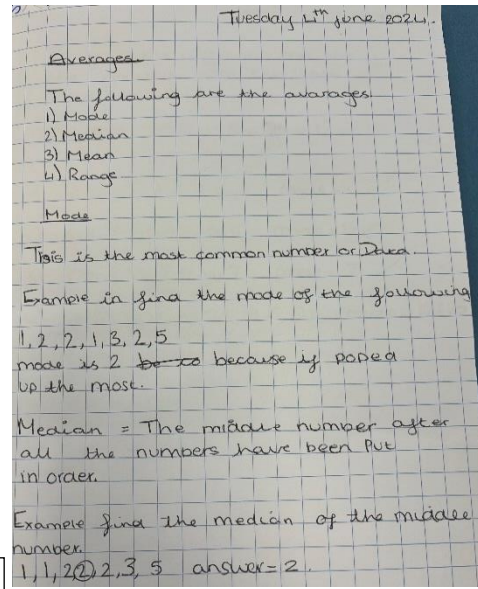 Tuesday 4th june 2024.
Averages
The following are the avarages
1) Mode
2) Median
3) Mean
4) Range
Mode
This is the most common number or Data.
Example in find the mode of the following
1, 2, 2, 1, 3, 2, 5
mode is 2 because if poped
up the most.
Median = The middle number after
all the numbers have been put
in order.
Example find the median of the middle
number.
1, 1, 2, 2, 2, 3, 5 answer = 2.